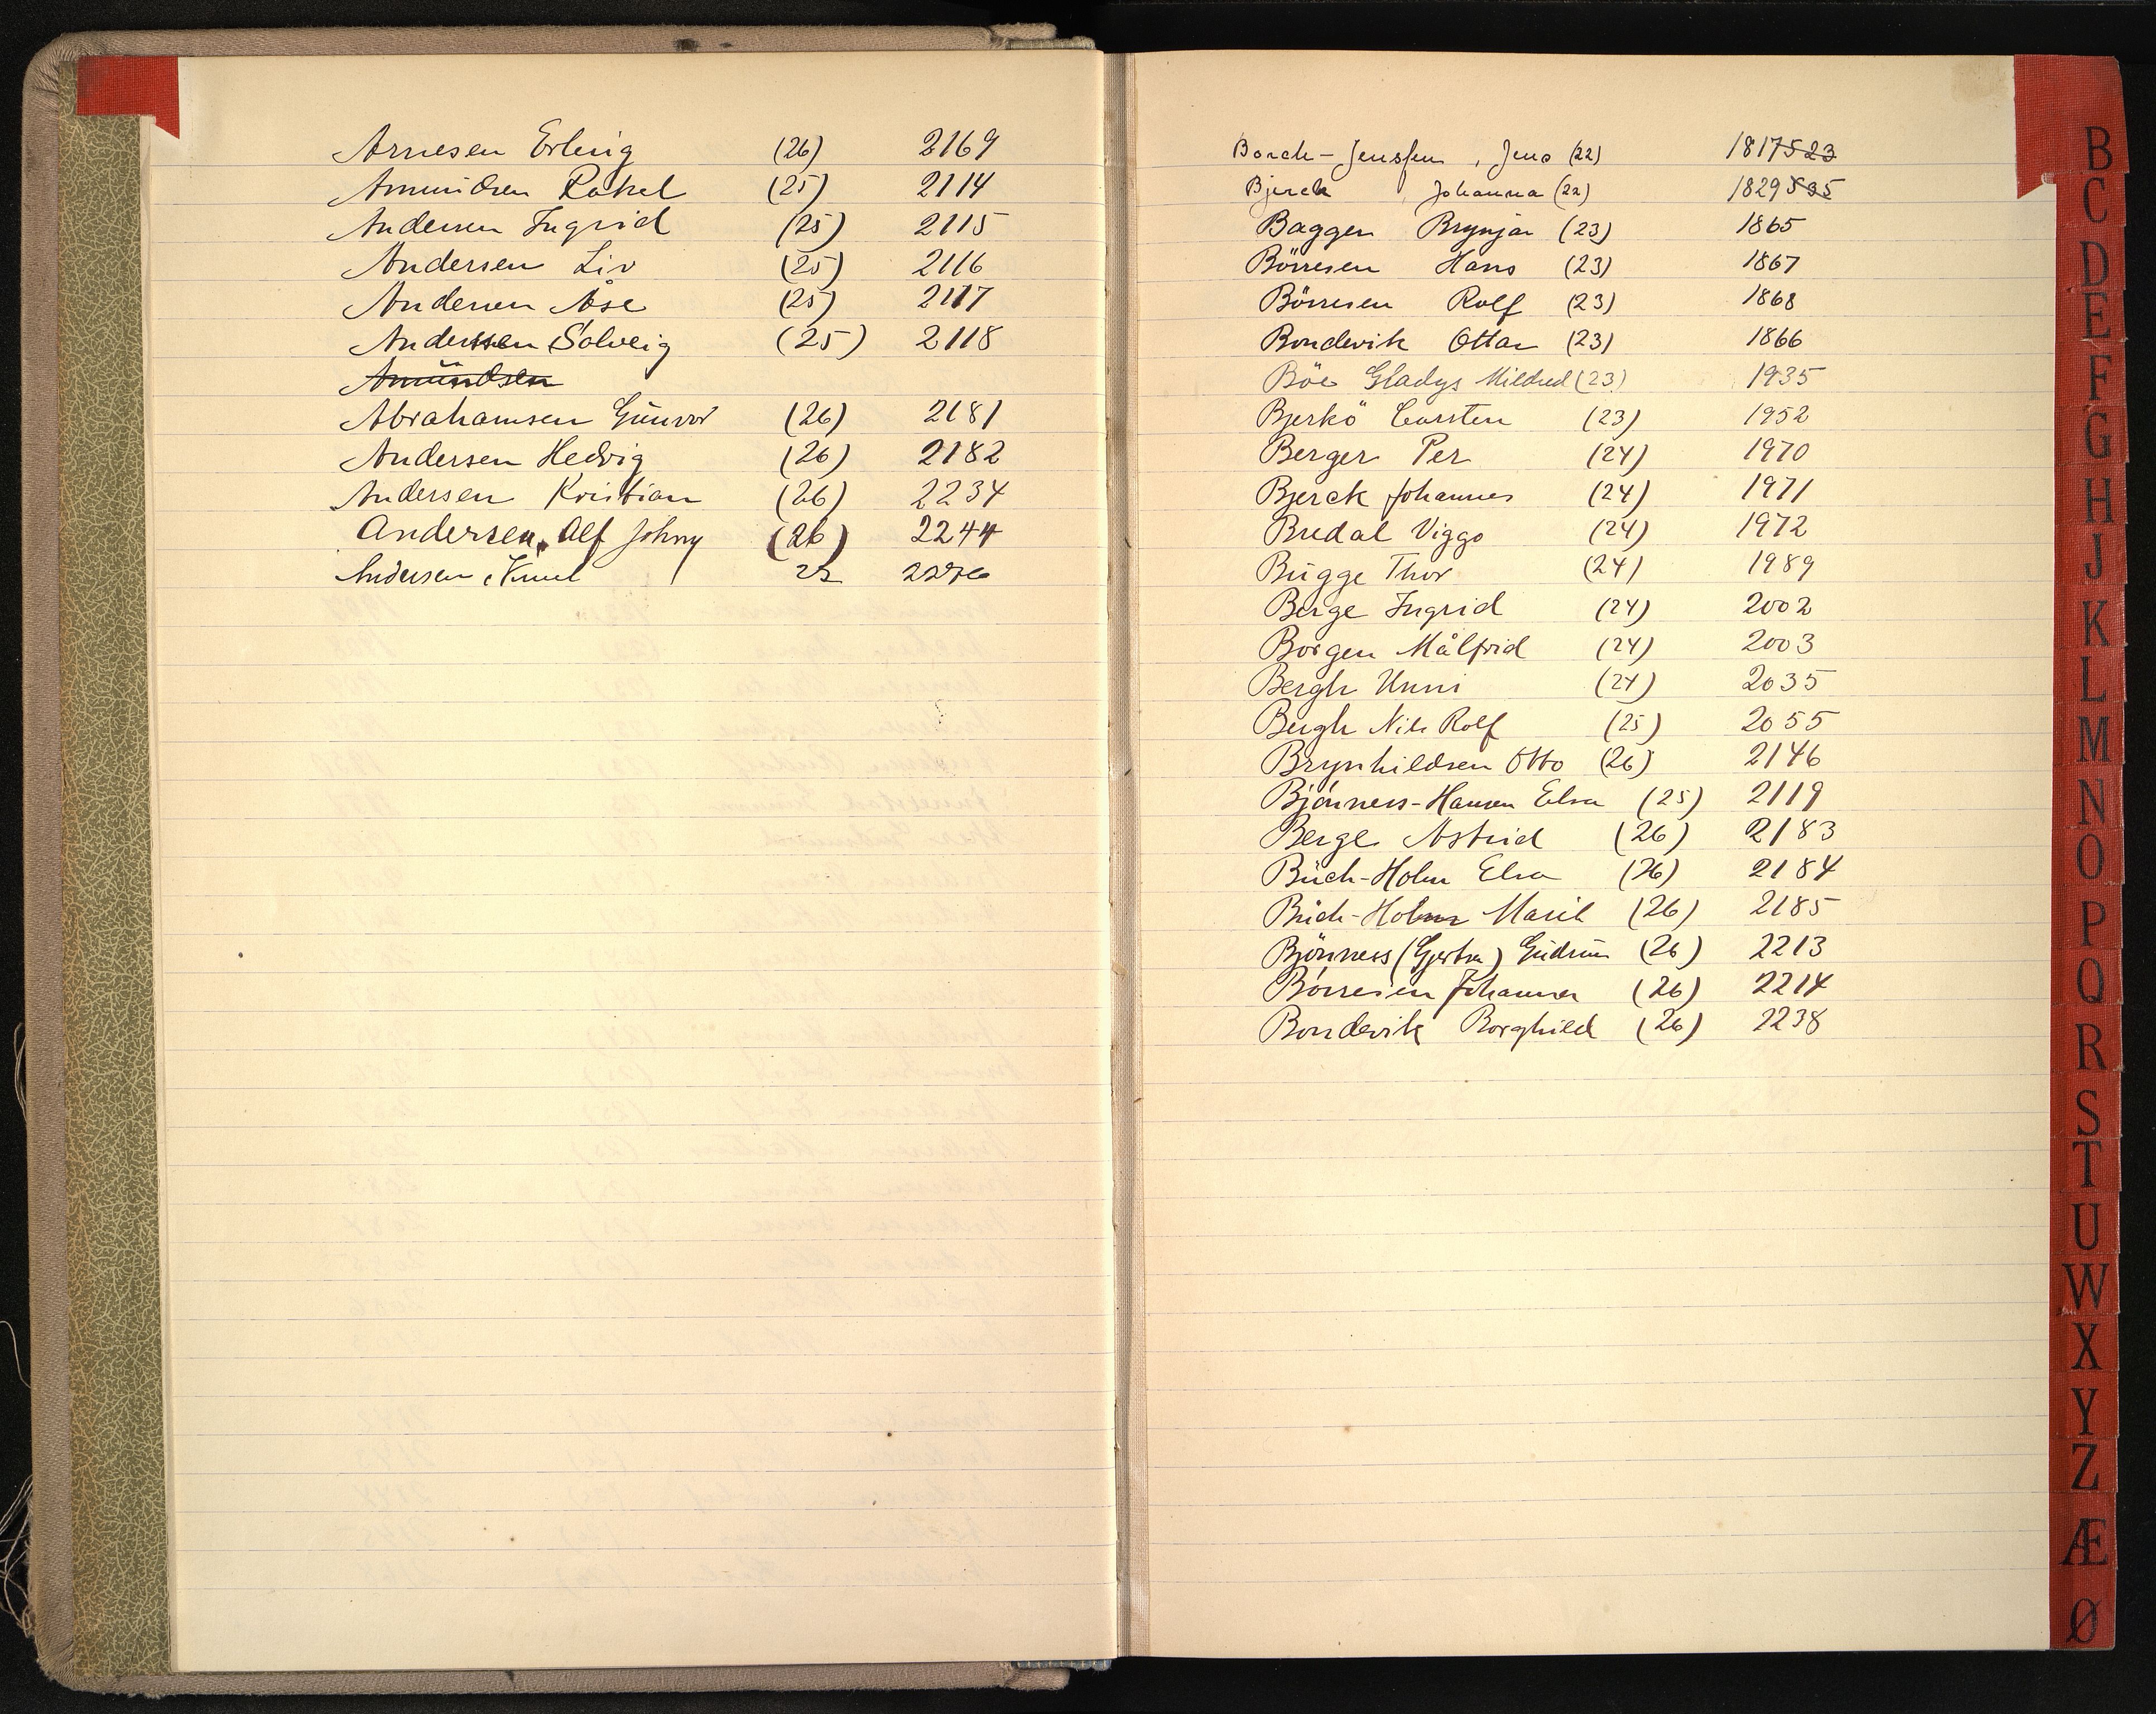 Arnesen Erling (26) 2169
Amundsen Rakel (25) 2114
Andersen Ingrid (25) 2115
Andersen Liv (25) 2116
Andersen Åse (25) 2117
Anderssen Solveig (25) 2118
Amündsen
Abrahamsen Günvor (26) 2181
Andersen Hedvig (26) 2182
Andersen Kristian (26) 2234
Andersen, Alf Johny (26) 2244
Andersen, Knut 22
Borch-Jenssen, Jens (22) 1817 523
Bjerck Johanna (22) 1829 535
Baggen Brynjar (23) 1865
Börresen Hans (23) 1867
Börresen Rolf (23) 1868
Bondevik Ottar (23) 1866
Böe Gladys Mildred (23) 1935
Bjerkö Carsten (23) 1952
Berger Per (24) 1970
Bjerck Johannes (24) 1971
Bredal Viggo (24) 1972
Bügge Thor (24) 1989
Berge Ingrid (24) 2002
Borgen Målfrid (24) 2003
Bergh Unni (24) 2035
Bergh Nils Rolf (25) 2055
Brynhildsen Otto (26) 2146
Bjönness-Hansen Elsa (25) 2119
Berge Astrid (26) 2183
Büch-Holm Elsa (26) 2184
Büch-Holm Marit (26) 2185
Bjönness (Gjertsen) Güdrün (26) 2213
Börresen Johanna (26) 2214
Bondevik Borghild (26) 2238
B
C
D
E
F
G
H
J
K
L
M
N
O
P
Q
R
S
T
U
W
X
Y
Z
Æ
Ø